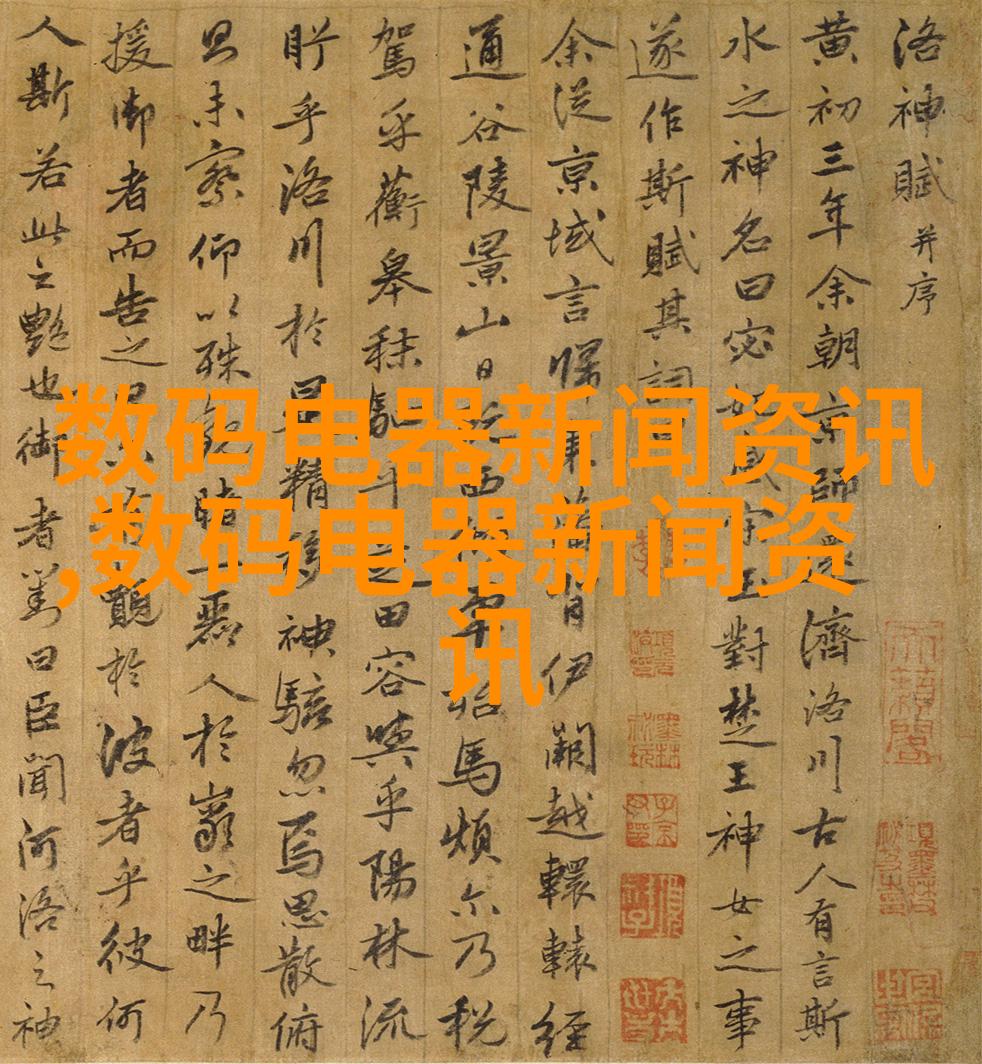 洛神賦并序
黄初三年余朝京師還濟洛川古人有言斯
水之神名曰宓妃感宋玉對楚王神女之事
遂作斯賦其詞曰
余從京域言歸東藩背伊闕越轘轅經
通谷陵景山日既西傾車殆馬煩尒乃税
駕乎蘅皋秣駟乎芝田容與乎陽林流
眄乎洛川於是精移神駭忽焉思散俯
則未察仰以殊觀睹一麗人於巖之畔乃
援御者而告之曰覿於彼者乎彼何
人斯若此之艷也御者對曰臣聞河洛之神
数码电器新闻资讯
,数码电器新闻资
讯